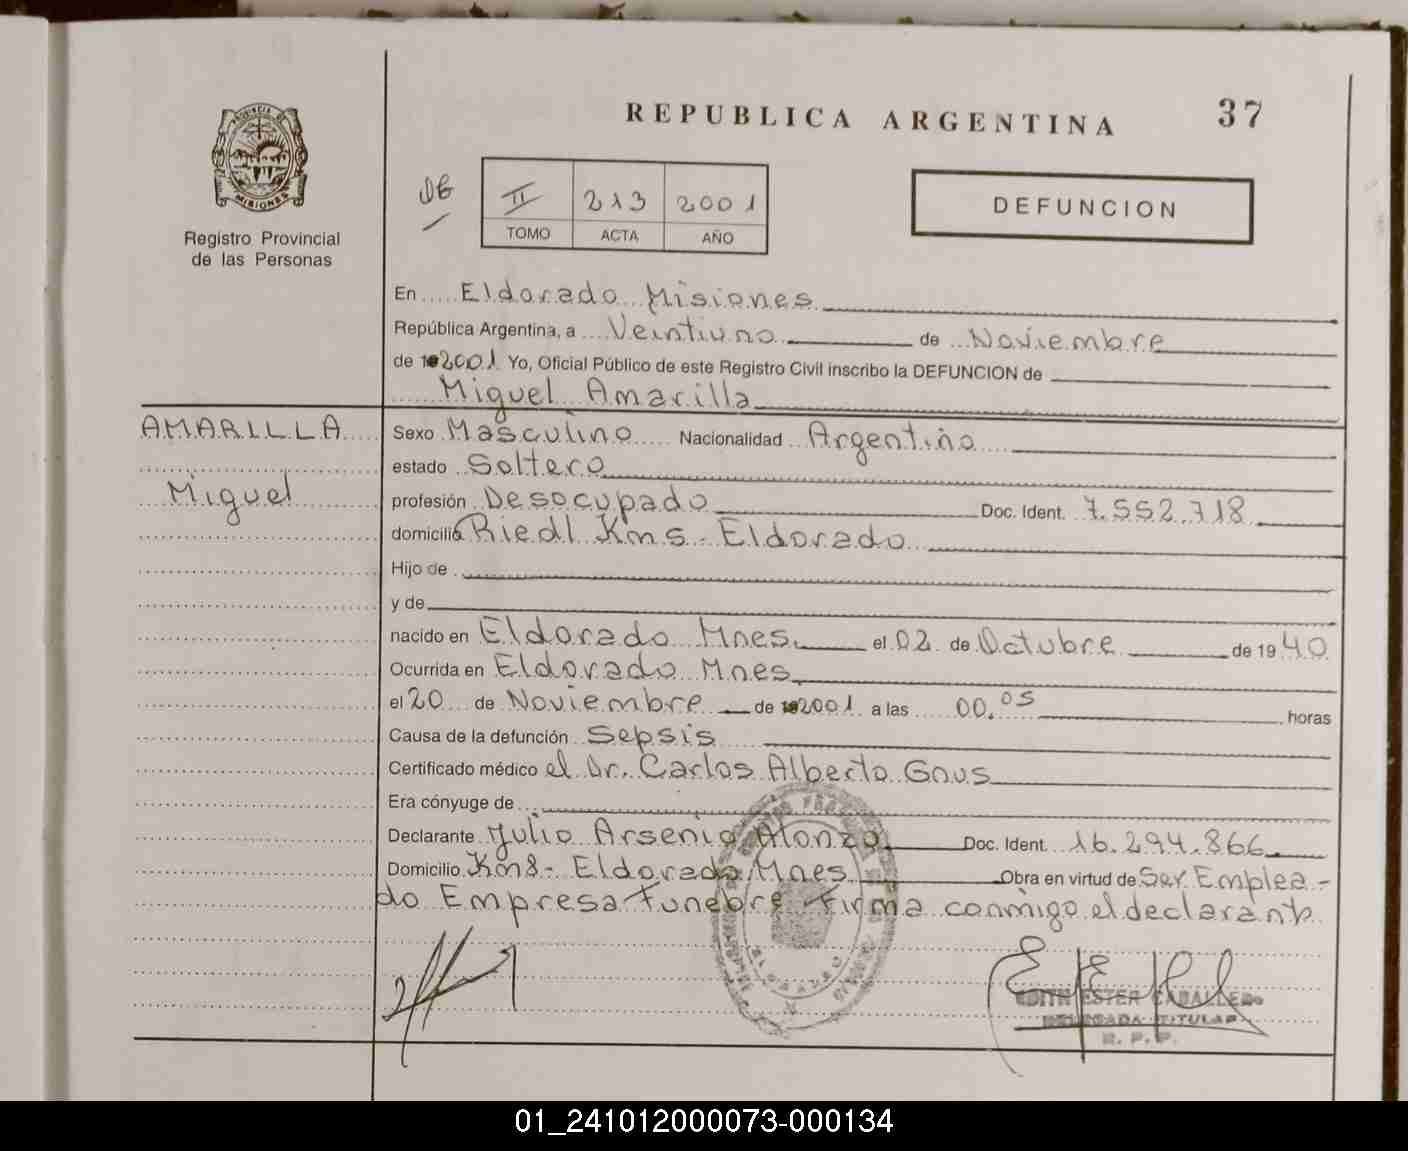 REPUBLICA ARGENTINA
37
PROVINCIA DE
MISIONES
Registro Provincial
de las Personas
II 213 2001
TOMO ACTA AÑO
DEFUNCION
En Eldorado Misiones
República Argentina, a Veintiuno de Noviembre
de 2001 Yo, Oficial Público de este Registro Civil inscribo la DEFUNCION de
Miguel Amarilla
AMARILLA
Miguel
Sexo Masculino Nacionalidad Argentino
estado Soltero
profesión Desocupado Doc. Ident. 7.552.718
domicilio Riedl Kms - Eldorado
Hijo de
y de
nacido en Eldorado Mnes. el 02 de Octubre de 1940
Ocurrida en Eldorado Mnes.
el 20 de Noviembre de 2001 a las 00.05 horas
Causa de la defunción Sepsis
Certificado médico el Dr. Carlos Alberto Gnus
Era cónyuge de
Declarante Julio Arsenio Alonzo Doc. Ident. 16.294.866
Domicilio Km8 - Eldorado Mnes Obra en virtud de Ser Emplea-
do Empresa Funebre Firma conmigo el declarante
EDITH ESTER CABALLERO
DELEGADA TITULAR
R. P. P.
01_241012000073-000134